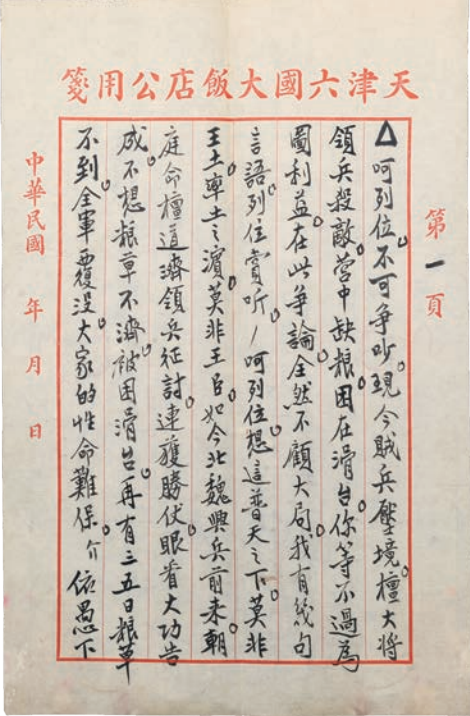 天津六國大飯店公用箋
第一頁
△呵列位。不可爭吵。現今賊兵壓境。檀大將
領兵殺敵。營中缺粮。困在滑台。你等不過為
圖利益。在此爭論。全然不顧大局。我有幾句
言語。列位賞听。/呵列位想。這普天之下。莫非
王土。率土之濱。莫非王臣。如今北魏興兵前來。朝
庭命檀道濟領兵征討。連獲勝仗。眼看大功告
成。不想粮草不濟。被困滑台。再有三五日粮草
不到。全軍覆没。大家的性命難保。介 依愚下
中華民國 年 月 日